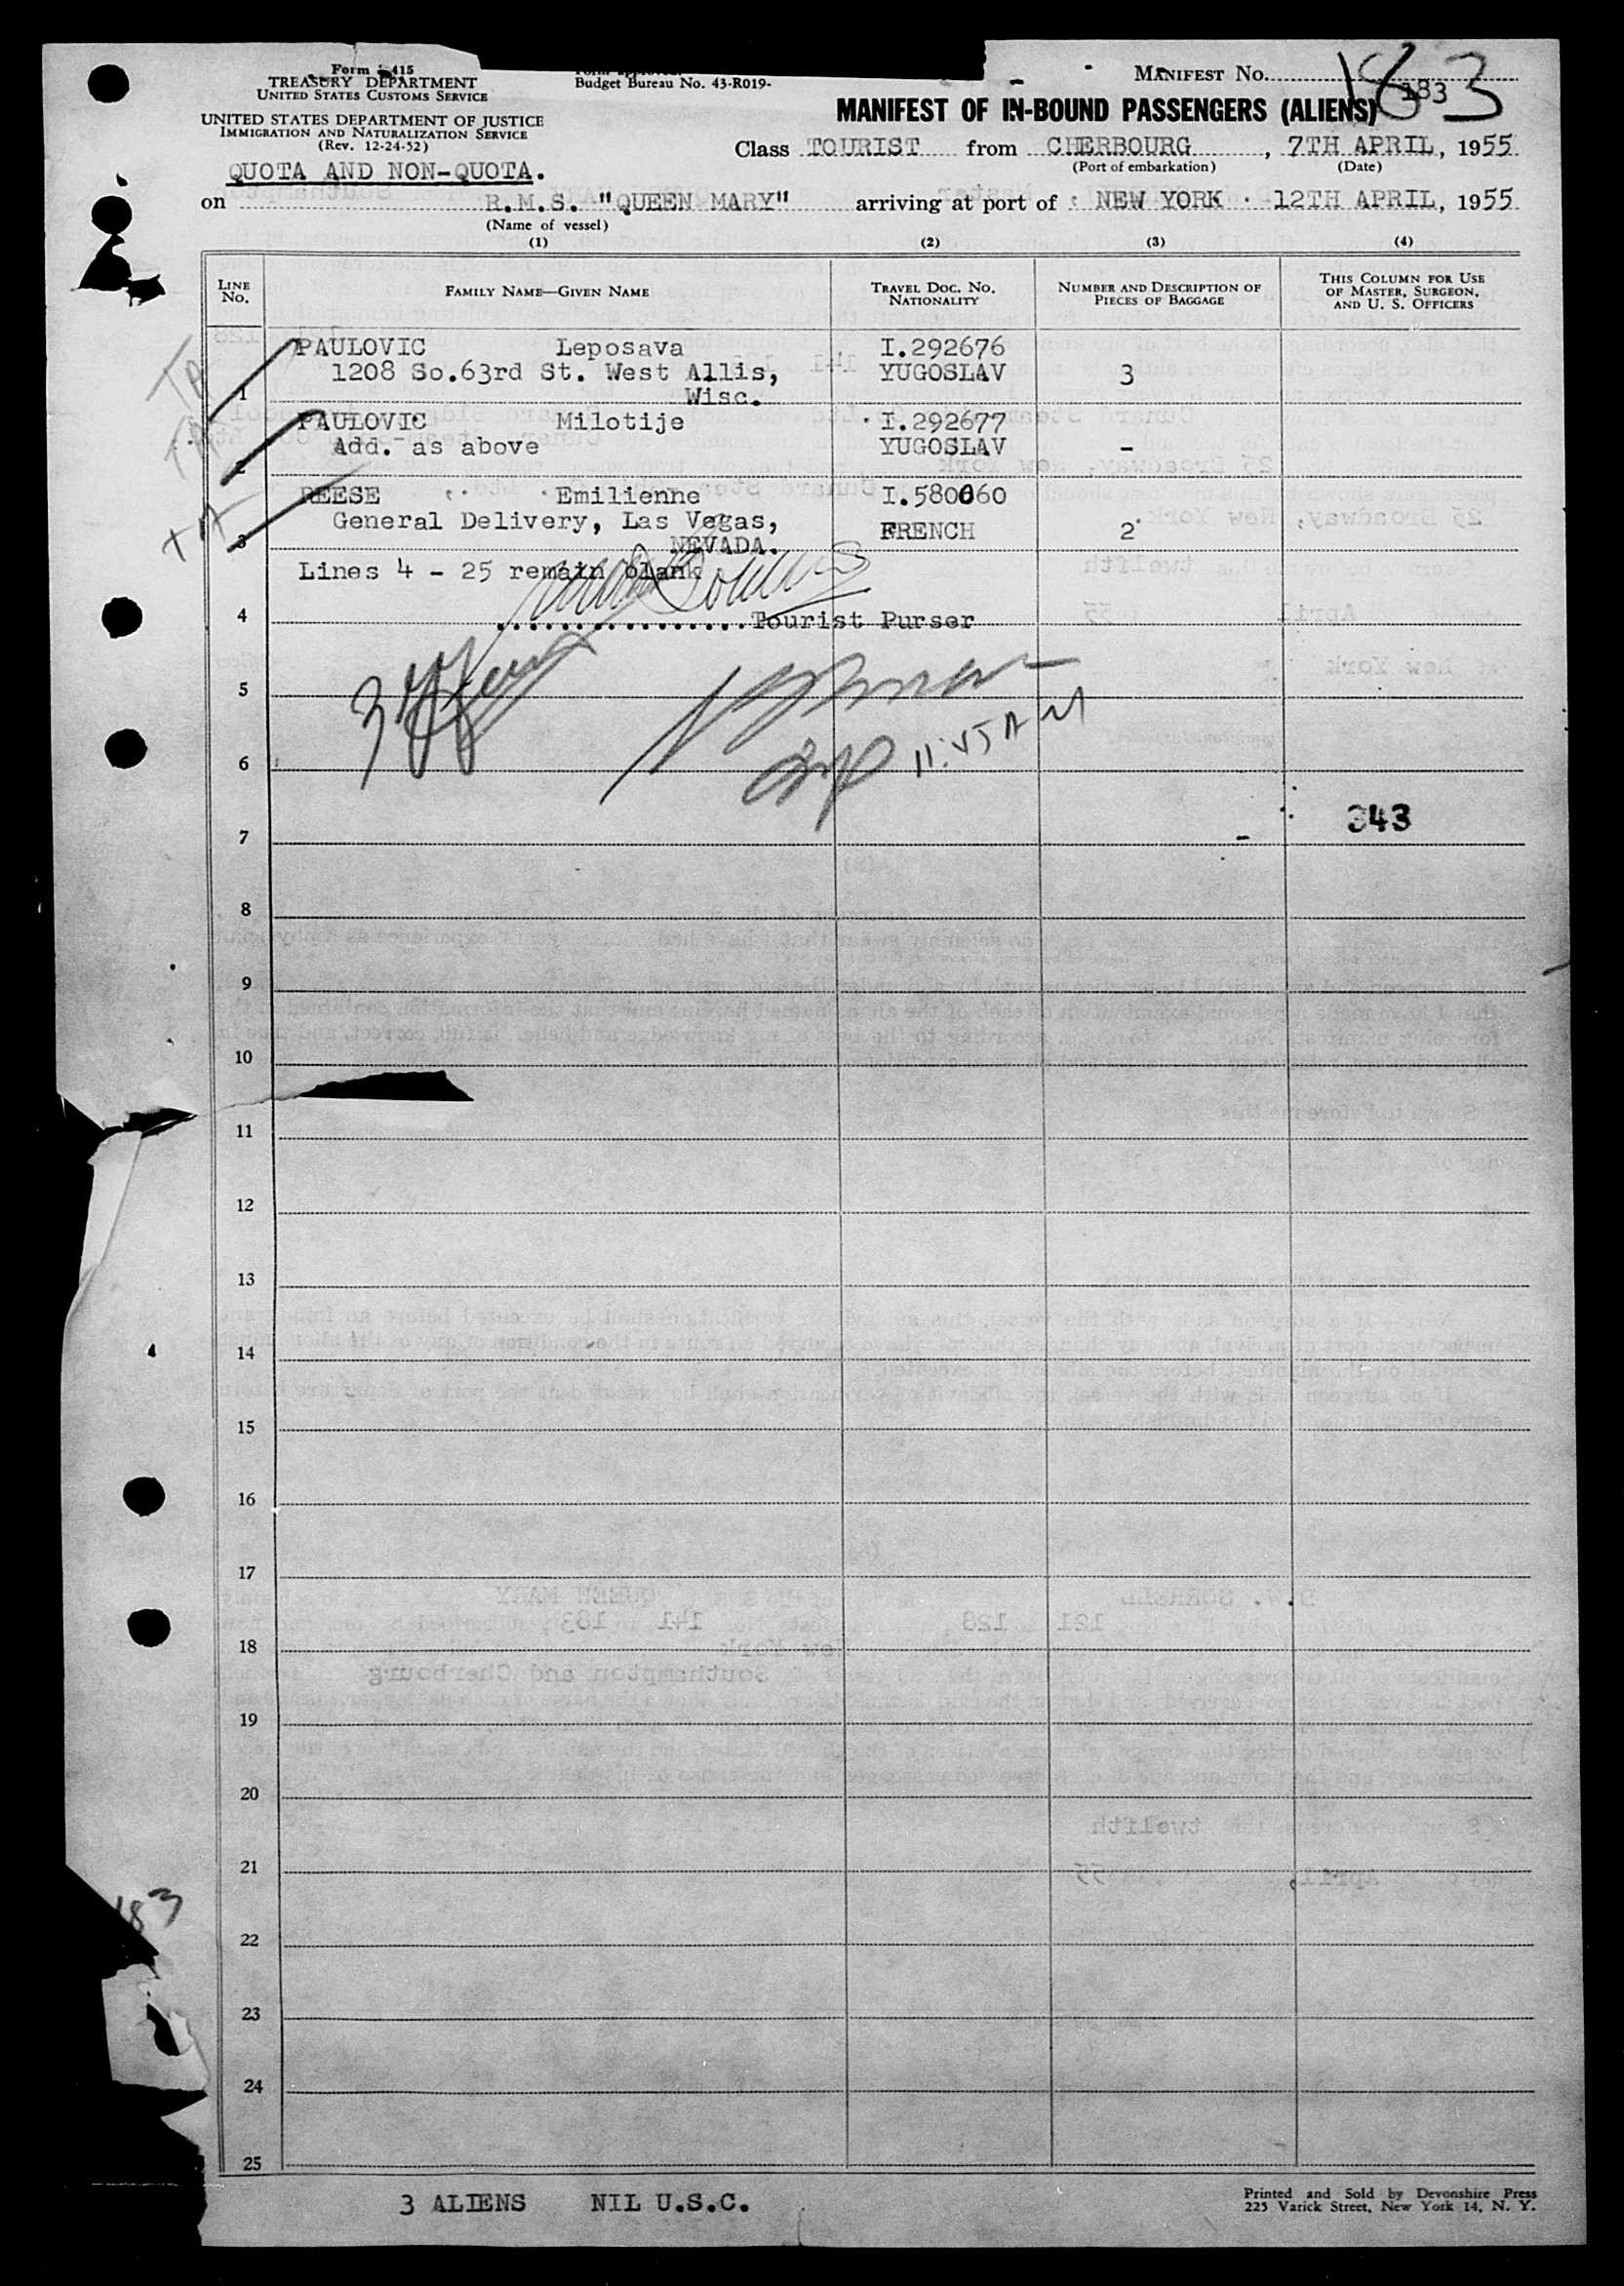 Form I-415
TREASURY DEPARTMENT
UNITED STATES CUSTOMS SERVICE
UNITED STATES DEPARTMENT OF JUSTICE
IMMIGRATION AND NATURALIZATION SERVICE
(Rev. 12-24-52)
QUOTA AND NON-QUOTA.
Form approved.
Budget Bureau No. 43-R019-
MANIFEST No. 183
183
MANIFEST OF IN-BOUND PASSENGERS (ALIENS)
Class TOURIST from CHERBOURG, 7TH APRIL, 1955
(Port of embarkation) (Date)
on R.M.S. "QUEEN MARY" arriving at port of NEW YORK 12TH APRIL, 1955
(Name of vessel)
(1) (2) (3) (4)
LINE No. FAMILY NAME—GIVEN NAME TRAVEL DOC. NO. NATIONALITY NUMBER AND DESCRIPTION OF PIECES OF BAGGAGE THIS COLUMN FOR USE OF MASTER, SURGEON, AND U. S. OFFICERS
PAULOVIC Leposava I.292676
1208 So.63rd St. West Allis, YUGOSLAV 3
1 Wisc.
PAULOVIC Milotije I.292677
Add. as above YUGOSLAV -
2
REESE Emilienne I.580060
General Delivery, Las Vegas, FRENCH 2
3 NEVADA.
Lines 4 - 25 remain blank
4 ................Tourist Purser
5
11:45 AM
6
343
7
8
9
10
11
12
13
14
15
16
17
18
19
20
21
183
22
23
24
25
3 ALIENS NIL U.S.C.
Printed and Sold by Devonshire Press
225 Varick Street, New York 14, N. Y.